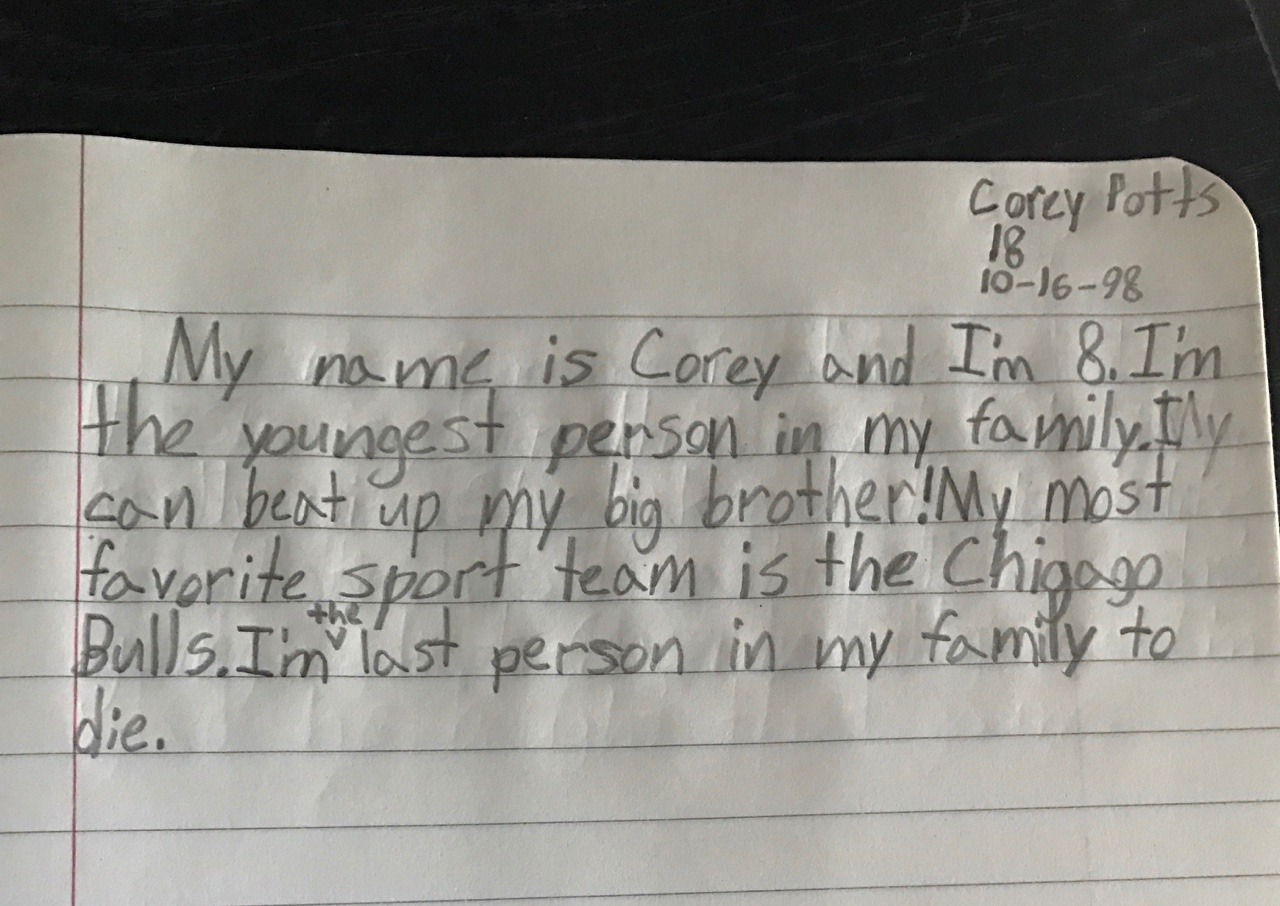 Corey Potts
18
10-16-98
My name is Corey and I'm 8. I'm
the youngest person in my family. I
can beat up my big brother! My most
favorite sport team is the Chigago
Bulls. I'm the last person in my family to
die.